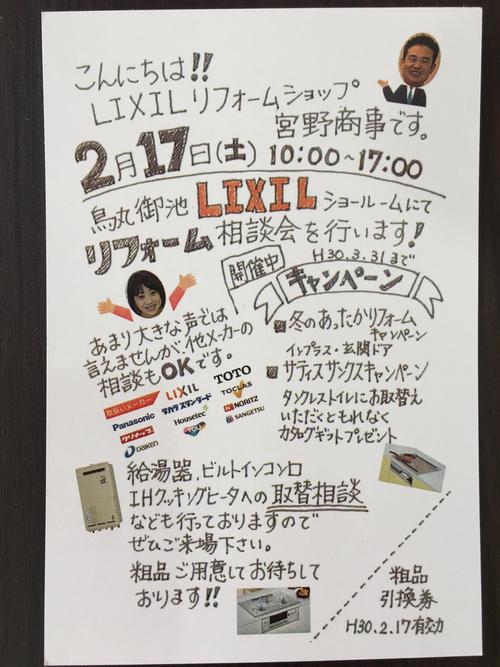 こんにちは!!
LIXILリフォームショップ
宮野商事です。
2月17日(土) 10:00~17:00
烏丸御池 LIXIL ショールームにて
リフォーム相談会を行います!
H30.3.31まで
開催中
キャンペーン
あまり大きな声では
言えませんが、他メーカーの
相談もOKです。
冬のあったかリフォーム
キャンペーン
インプラス・玄関ドア
サティスサンクスキャンペーン
タンクレストイレにお取替え
いただくともれなく
カタログギフトプレゼント
取扱いメーカー LIXIL TOTO
Panasonic タカラスタンダード TOCLAS
クリナップ Housetec NORITZ
DAIKEN SANGETSU
給湯器、ビルトインコンロ
IHクッキングヒータへの取替相談
なども行っておりますので
ぜひご来場下さい。
粗品ご用意してお待ちして
おります!!
粗品
引換券
H30.2.17有効